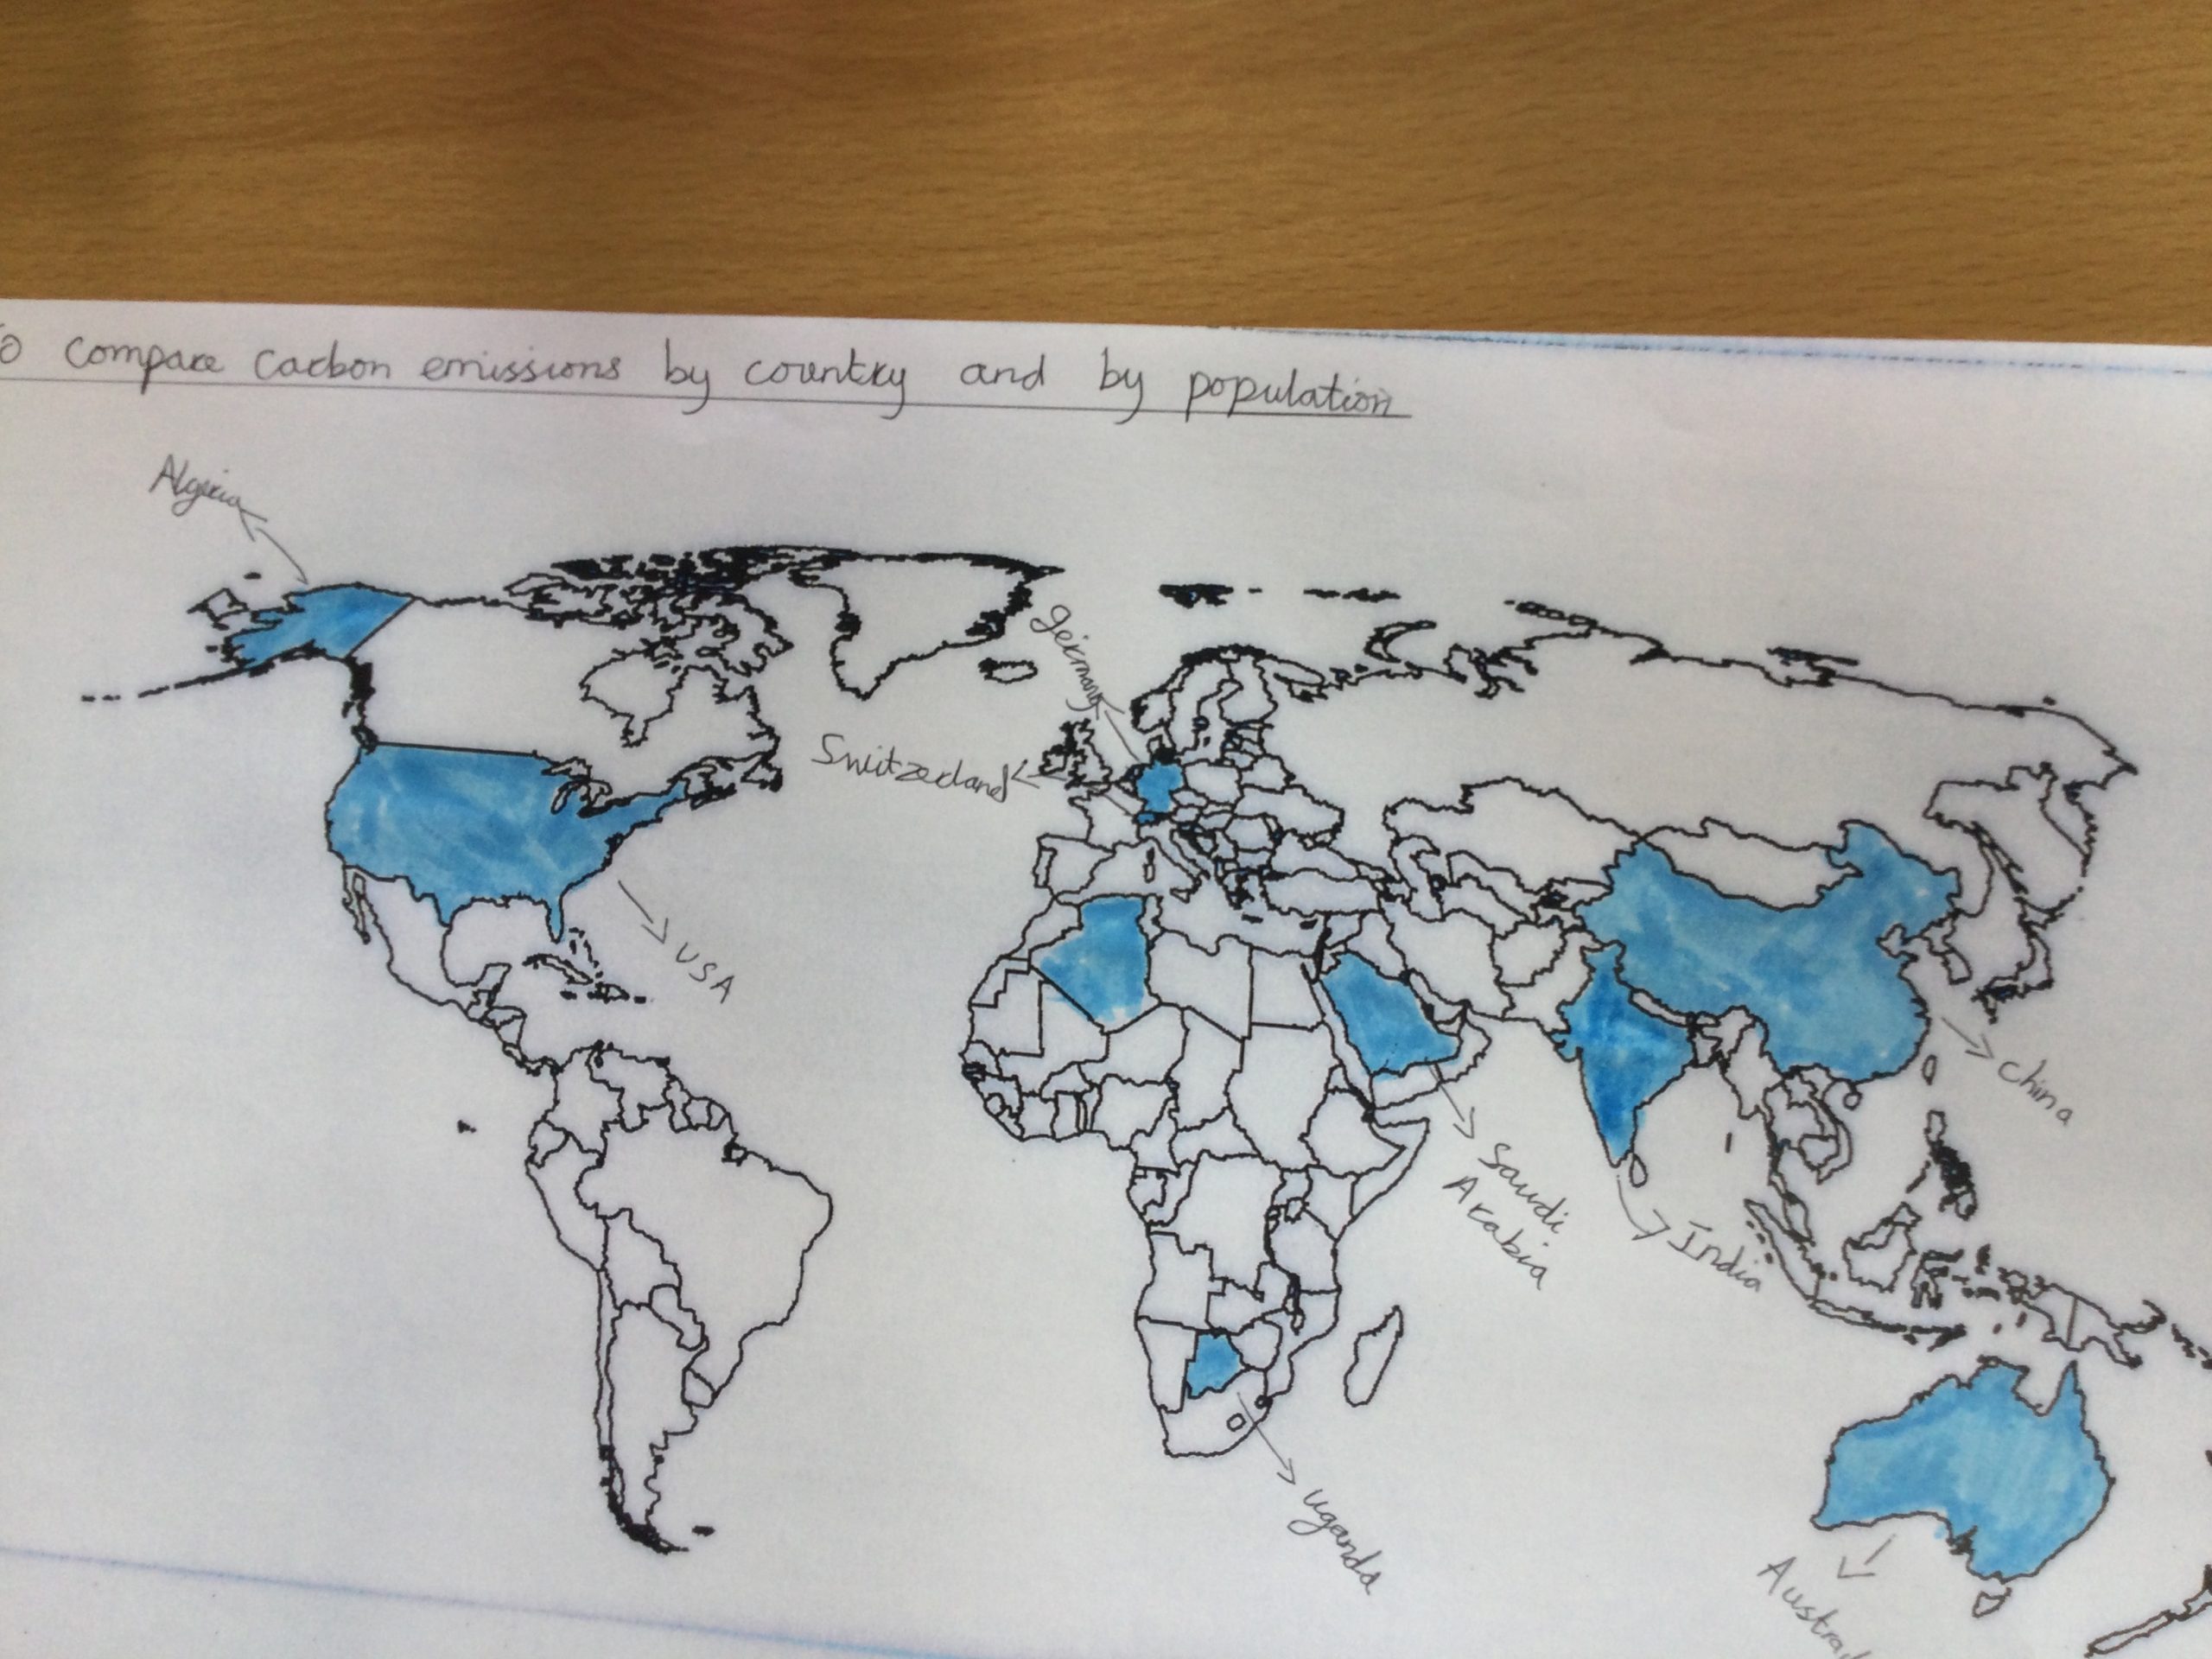 o compare carbon emissions by country and by population
Algeria
germany
Switzerland
USA
china
Saudi
Arabia
India
uganda
Austral